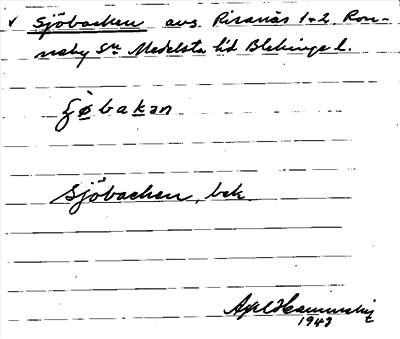 v Sjöbacken avs. Risanäs 1+2, Ron-
neby Sn Medelsta hd Blekinge l.
ʃøbakan
Sjöbacken, bek.
Axel
1943